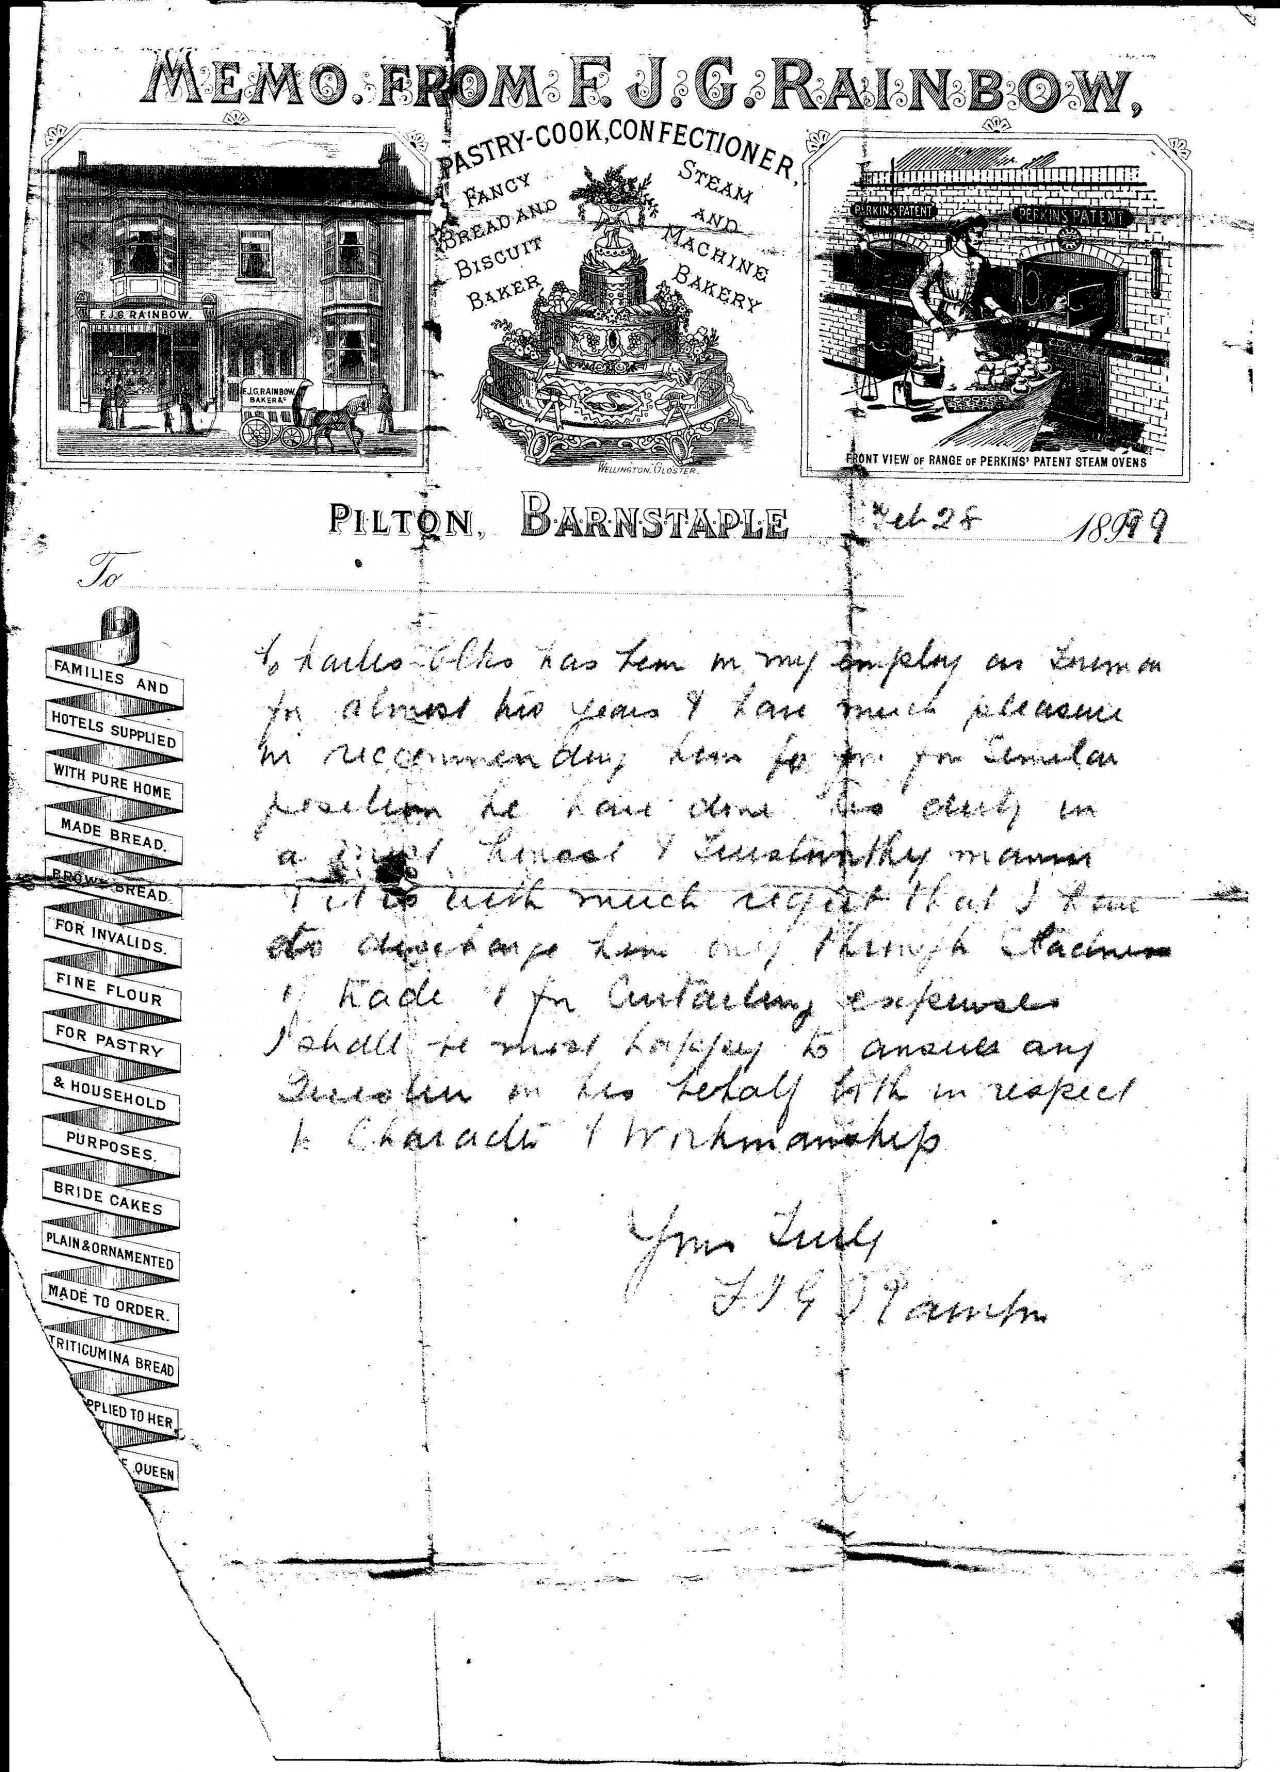 MEMO. FROM F. J. G. RAINBOW,
PASTRY-COOK, CONFECTIONER,
FANCY
BREAD AND
BISCUIT
BAKER
STEAM
AND
MACHINE
BAKERY
F.J.G. RAINBOW.
F.J.G. RAINBOW
BAKER &c
WELLINGTON, GLOSTER.
PERKINS PATENT
PERKINS PATENT
FRONT VIEW OF RANGE OF PERKINS' PATENT STEAM OVENS
PILTON, BARNSTAPLE Feb 28 1899
To
Charles has been in my employ as foreman
for almost two years & have much pleasure
in recommending him for similar
position he have done his duty in
a most honest & trustworthy manner
& it is with much regret that I have
to discharge him only through slackness
of trade & for curtailing expenses
I shall be most happy to answer any
Question on his behalf both in respect
to Character & Workmanship
Yours Truly
F J G Rainbow
FAMILIES AND
HOTELS SUPPLIED
WITH PURE HOME
MADE BREAD.
BROWN BREAD
FOR INVALIDS.
FINE FLOUR
FOR PASTRY
& HOUSEHOLD
PURPOSES.
BRIDE CAKES
PLAIN & ORNAMENTED
MADE TO ORDER.
TRITICUMINA BREAD
PPLIED TO HER
E QUEEN